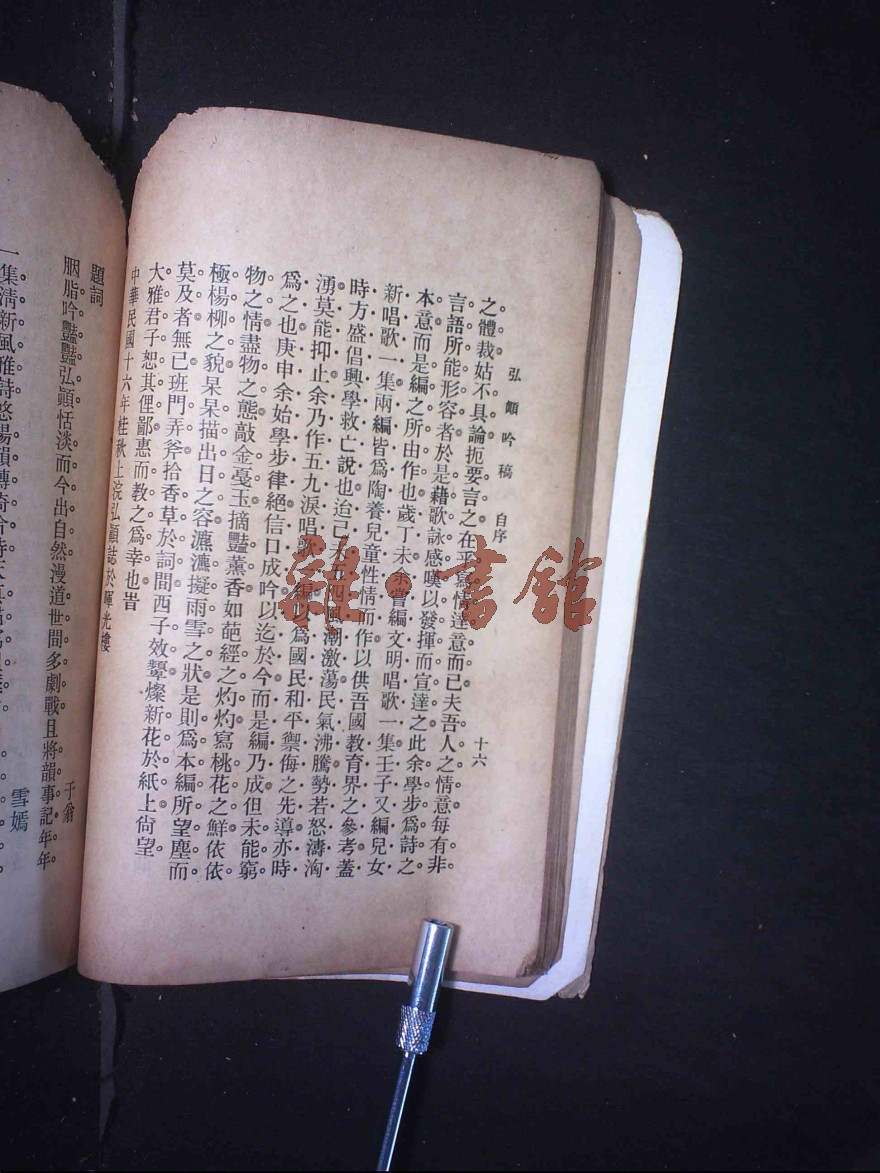 弘顗吟稿 自序 十六
之體裁姑不具論扼要言之在乎寫情達意而已夫吾人之情意每有非
言語所能形容者於是藉歌詠感嘆以發揮而宣達之此余學步爲詩之
本意而是編之所由作也歲丁未余嘗編文明唱歌一集壬子又編兒女
新唱歌一集兩編皆爲陶養兒童性情而作以供吾國教育界之參考蓋
時方盛倡興學救亡說也迨己未五四風潮激蕩民氣沸騰勢若怒濤洶
湧莫能抑止余乃作五九淚唱歌一編以爲國民和平禦侮之先導亦時
爲之也庚申余始學步律絕信口成吟以迄於今而是編乃成但未能窮
物之情盡物之態敲金戞玉摘豔薰香如葩經之灼灼寫桃花之鮮依依
極楊柳之貌杲杲描出日之容瀌瀌擬雨雪之狀是則爲本編所望塵而
莫及者無已班門弄斧拾香草於詞間西子效顰燦新花於紙上尙望
大雅君子恕其俚鄙惠而教之爲幸也旹
中華民國十六年桂秋上浣弘顗誌於暉光樓
題詞
于翁
胭脂吟豔豔弘顗恬淡而今出自然漫道世間多劇戰且將韻事記年年
雪嫣
一集淸新風雅詩悠揚韻
雜·書館